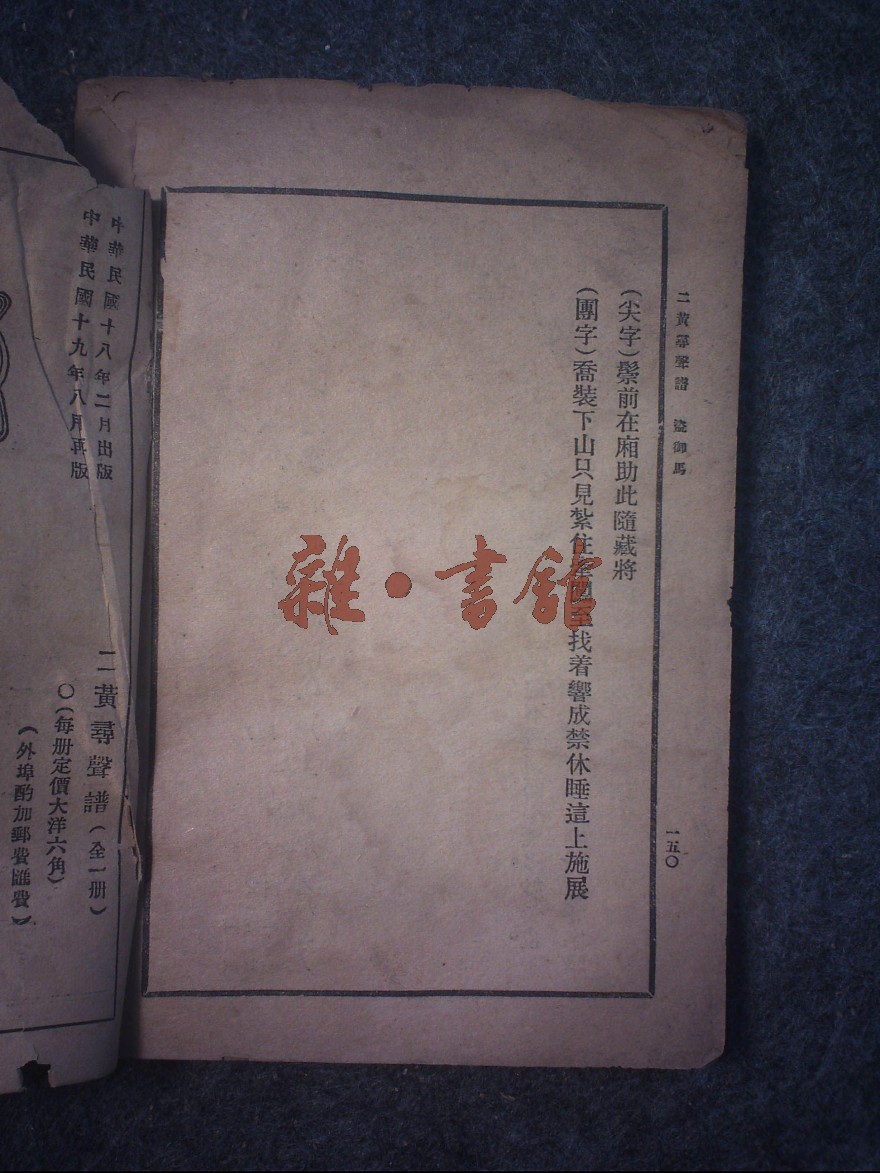 二黃尋聲譜 盜御馬
一五〇
(尖字)鬃前在廂助此隨藏將
(團字)喬裝下山只見紮住 找着響成禁休睡這上施展
雜·書館
中華民國十八年二月出版
中華民國十九年八月再版
二黃尋聲譜(全一册)
〇(每册定價大洋六角)
(外埠酌加郵費匯費)